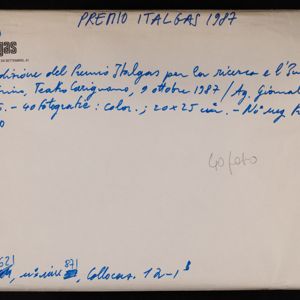 PREMIO ITALGAS 1987
gas
dizione del Premio Italgas per la ricerca e l'
Teatro Carignano, 9 ottobre 1987 / Ag. Giornal
S. - 40 fotografie : color. ; 20x25 cm. - N° neg
o
40 foto
621
871, Collocaz. 12-1